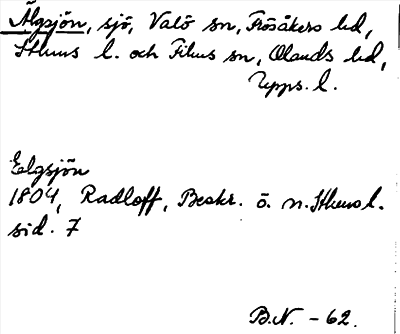 Älgsjön, sjö, Valö sn, Frösåkers hd,
Sthms l. och Films sn, Olands hd,
Upps. l.
Elgsjön
1804, Radloff, Beskr. ö. n. Sthms l.
sid. 7
B.N. - 62.